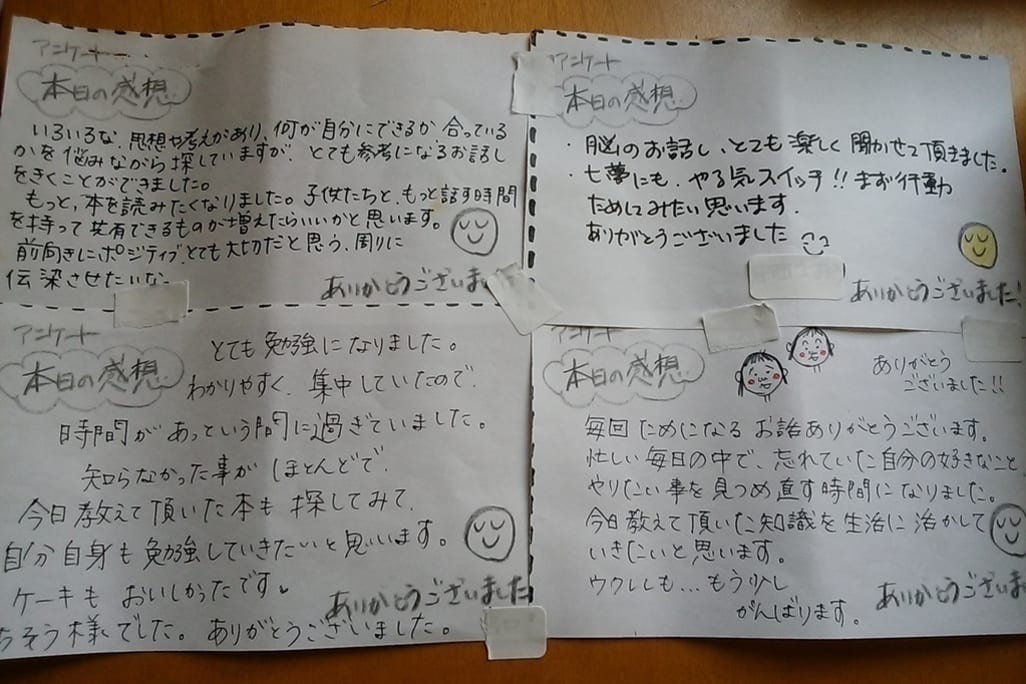 アンケート
本日の感想
いろいろな、思想や考えがあり、何が自分にできるか 合っている
かを 悩みながら 探していますが、とても参考になるお話し
をきくことができました。
もっと、本を読みたくなりました。子供たちと、もっと話す時間
を持って 共有できるものが増えたらいいかと思います。
前向きにポジティブ、とても大切だと思う、周りに
伝染させたいな〜
ありがとうございま
アンケート
本日の感想
・脳のお話し、とても 楽しく 聞かせて頂きました。
・七夢にも、やる気スイッチ!! まず行動
ためしてみたい思います.
ありがとうございました
ありがとうございました!
アンケート
本日の感想
とても 勉強になりました。
わかりやすく、集中していたので、
時間が あっという間に過ぎていました。
知らなかった事が ほとんどで、
今日教えて頂いた本も 探してみて、
自分自身も 勉強していきたいと思います。
ケーキも おいしかったです。
ちそう様でした。ありがとうございました。
ありがとうございました
アンケート
本日の感想
ありがとう
ございました!!
毎回 ためになる お話ありがとうございます。
忙しい毎日の中で、忘れていた自分の好きなこと、
やりたい事を見つめ直す時間になりました。
今日教えて頂いた知識を生活に活かして
いきたいと思います。
ウクレレも...もう少し
がんばります。
ありがとうございました